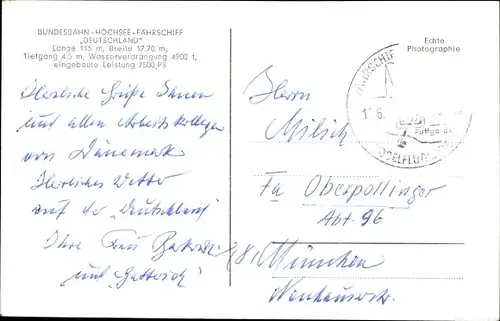 BUNDESBAHN-HOCHSEE-FÄHRSCHIFF
„DEUTSCHLAND"
Länge 115 m, Breite 17.70 m,
Tiefgang 4,5 m, Wasserverdrängung 4900 t,
eingebaute Leistung 7500 PS
Herzliche Grüße Ihnen
und allen Arbeitskollegen
von Dänemark
Herrliches Wetter
auf der „Deutschland"
Ihre Frau
und
Echte
Photographie
FÄHRSCHIFF
Puttgarden
VOGELFLUG
Herrn
Milich
Fa Oberpollinger
Abt. 96
8, München
Neuhauserstr.